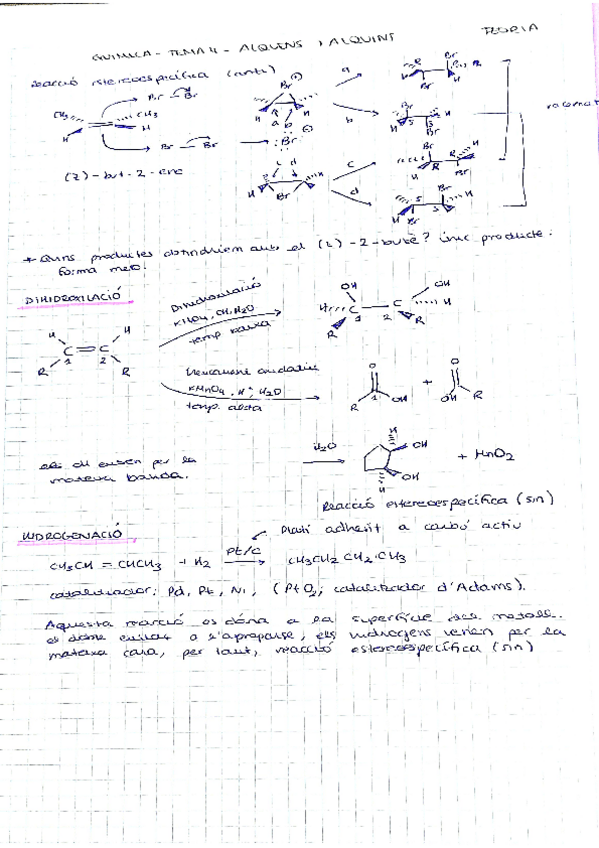 QUIMICA - TEMA 4 - ALQUENS I ALQUINS
TEORIA
reacció estereoespecífica (anti)
Br Br
CH3 CH3
H H
Br Br
(Z) - but - 2 - ene
Br
a b
:Br:
c d
Br
a
b
c
d
Br
R
H
Br
S S
H Br
Br
R R
H Br
Br
S S
H Br
* Quins productes obtindriem amb el (Z) - 2 - butè? únic producte:
forma meso.
DIHIDROXILACIÓ
Dihidroxilació
KMnO4, OH, H2O
temp baixa
H H
C = C
1 2
R R
OH OH
H C — C H
1 2
R R
KMnO4, H+, H2O
temp. alta
O O
R OH + OH R
els OH entren per la
mateixa banda.
H2O
H OH
OH + MnO2
H
Reacció estereoespecífica (sin)
HIDROGENACIÓ
Platí adherit a carbó actiu
CH3CH = CHCH3 + H2 Pt/C CH3CH2CH2CH3
catalitzador: Pd, Pt, Ni, (PtO2, catalitzador d'Adams).
Aquesta reacció es dóna a la superfície dels metalls.
a s'apropar-se, els hidrogens venen per la
mateixa cara, per tant, reacció estereoespecífica (sin)